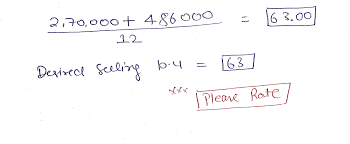 2,70,000 + 486000 = 63.00
12
Desired Selling = 63
*** Please Rate